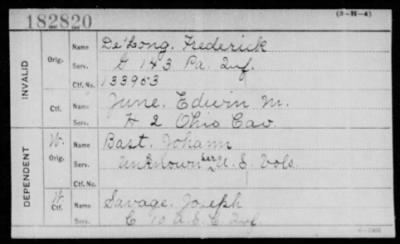 182820
(3-H-4)
INVALID
Orig.
Name De'Long, Frederick
Serv. G 143 Pa. Inf.
Ctf. No. 133953
Ctf.
Name June, Edwin M.
Serv. F 2 Ohio Cav.
DEPENDENT
W.
Orig.
Name Bast, Johann
Serv. Unknown U.S. Vols.
Ctf. No.
W.
Ctf.
Name Savage, Joseph
Serv. C 10 U.S.C. Inf.